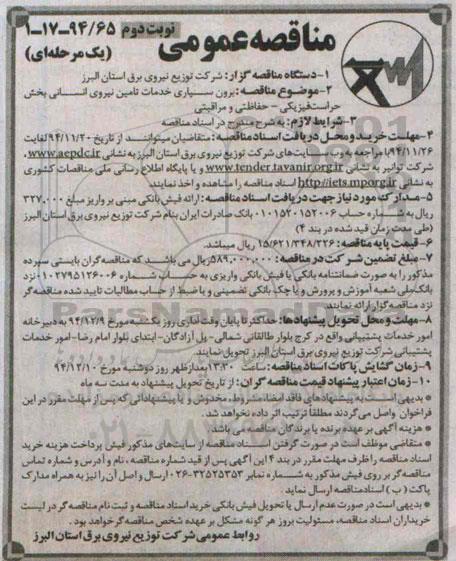 مناقصه عمومی
نوبت دوم ۹۴/۶۵-۱۷-۱
(یک مرحله‌ای)
۱-دستگاه مناقصه گزار: شرکت توزیع نیروی برق استان البرز
۲-موضوع مناقصه: برون سپاری خدمات تامین نیروی انسانی بخش
حراست فیزیکی - حفاظتی و مراقبتی
۳-شرایط لازم: به شرح مندرج در اسناد مناقصه
۴-مهلت خرید و محل دریافت اسناد مناقصه: متقاضیان میتوانند از تاریخ ۹۴/۱۱/۲۰ لغایت
۹۴/۱۱/۲۶ با مراجعه به وب سایت‌های شرکت توزیع نیروی برق استان البرز به نشانی www.aepdc.ir،
شرکت توانیر به نشانی www.tender.tavanir.org.ir و یا پایگاه اطلاع رسانی ملی مناقصات کشوری
به نشانی http://iets.mporg.ir اسناد مناقصه را مشاهده و اخذ نمایند.
۵-مدارک مورد نیاز جهت دریافت اسناد مناقصه: ارائه فیش بانکی مبنی بر واریز مبلغ ۳۲۷,۰۰۰
ریال به شماره حساب ۰۱۰۱۵۲۰۱۵۲۰۰۶ بانک صادرات ایران بنام شرکت توزیع نیروی برق استان البرز
(طی مدت زمان قید شده در بند ۴)
۶-قیمت پایه مناقصه: ۱۵/۶۲۱/۳۴۸/۲۲۶ ریال میباشد.
۷-مبلغ تضمین شرکت در مناقصه: ۵۸۹,۰۰۰,۰۰۰ ریال می باشد که مناقصه‌گران بایستی سپرده
مذکور را به صورت ضمانتنامه بانکی یا فیش بانکی واریزی به حساب شماره ۰۱۰۲۷۹۵۱۲۶۰۰۶ نزد
بانک ملی شعبه آموزش و پرورش و یا چک بانکی تضمینی و یا ضبط از حساب مطالبات تایید شده مناقصه‌گر
نزد مناقصه گزار ارائه نمایند.
۸-مهلت و محل تحویل پیشنهادها: حداکثر تا پایان وقت اداری روز یکشنبه مورخ ۹۴/۱۲/۹ به دبیرخانه
امور خدمات پشتیبانی واقع در کرج بلوار طالقانی شمالی - پل آزادگان - ابتدای بلوار امام رضا - امور خدمات
پشتیبانی شرکت توزیع نیروی برق استان البرز تحویل نمایند.
۹-زمان گشایش پاکات اسناد مناقصه: ساعت ۱۳:۳۰ بعدازظهر روز دوشنبه مورخ ۹۴/۱۲/۱۰
۱۰-زمان اعتبار پیشنهاد قیمت مناقصه گران: از تاریخ تحویل پیشنهاد به مدت سه ماه
* بدیهی است به پیشنهادهای فاقد امضا، مشروط، مخدوش و یا پیشنهاداتی که پس از مهلت مقرر در این
فراخوان واصل می گردند مطلقا ترتیب اثر داده نخواهد شد.
* هزینه آگهی بر عهده برنده یا برندگان مناقصه می باشد.
* متقاضی موظف است در صورت گرفتن اسناد مناقصه از سایت‌های مذکور فیش پرداخت هزینه خرید
اسناد مناقصه را ظرف مهلت مقرر در بند ۴ این آگهی پس از قید شماره مناقصه، نام و آدرس و شماره تماس
مناقصه گر بر روی فیش مذکور به شماره نمابر ۳۲۵۲۵۳۵۳-۰۲۶ ارسال و اصل آن را نیز به همراه مدارک
پاکت (ب) اسناد مناقصه ارسال نماید
* بدیهی است در صورت عدم ارسال یا تحویل فیش بانکی خرید اسناد مناقصه و ثبت نام مناقصه گر در لیست
خریداران اسناد مناقصه، مسئولیت بروز هر گونه مشکل بر عهده شخص مناقصه گر خواهد بود.
روابط عمومی شرکت توزیع نیروی برق استان البرز
ParsNamadData